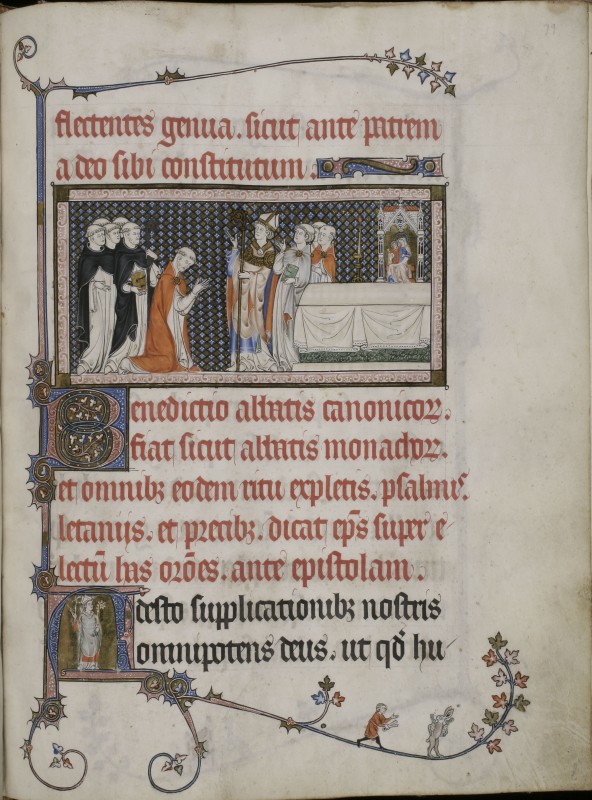 flectentes genua. sicut ante patrem
a deo sibi constitutum.
Benedictio abbatis canonicoꝝ.
fiat sicut abbatis monachoꝝ.
et omnibꝫ eodem ritu expletis. psalmis.
letaniis. et precibꝫ. dicat ep̄s super e
lectū has or̄oēs. ante epistolam.
Adesto supplicationibꝫ nostris
omnipotens deus. ut qd̄ hu